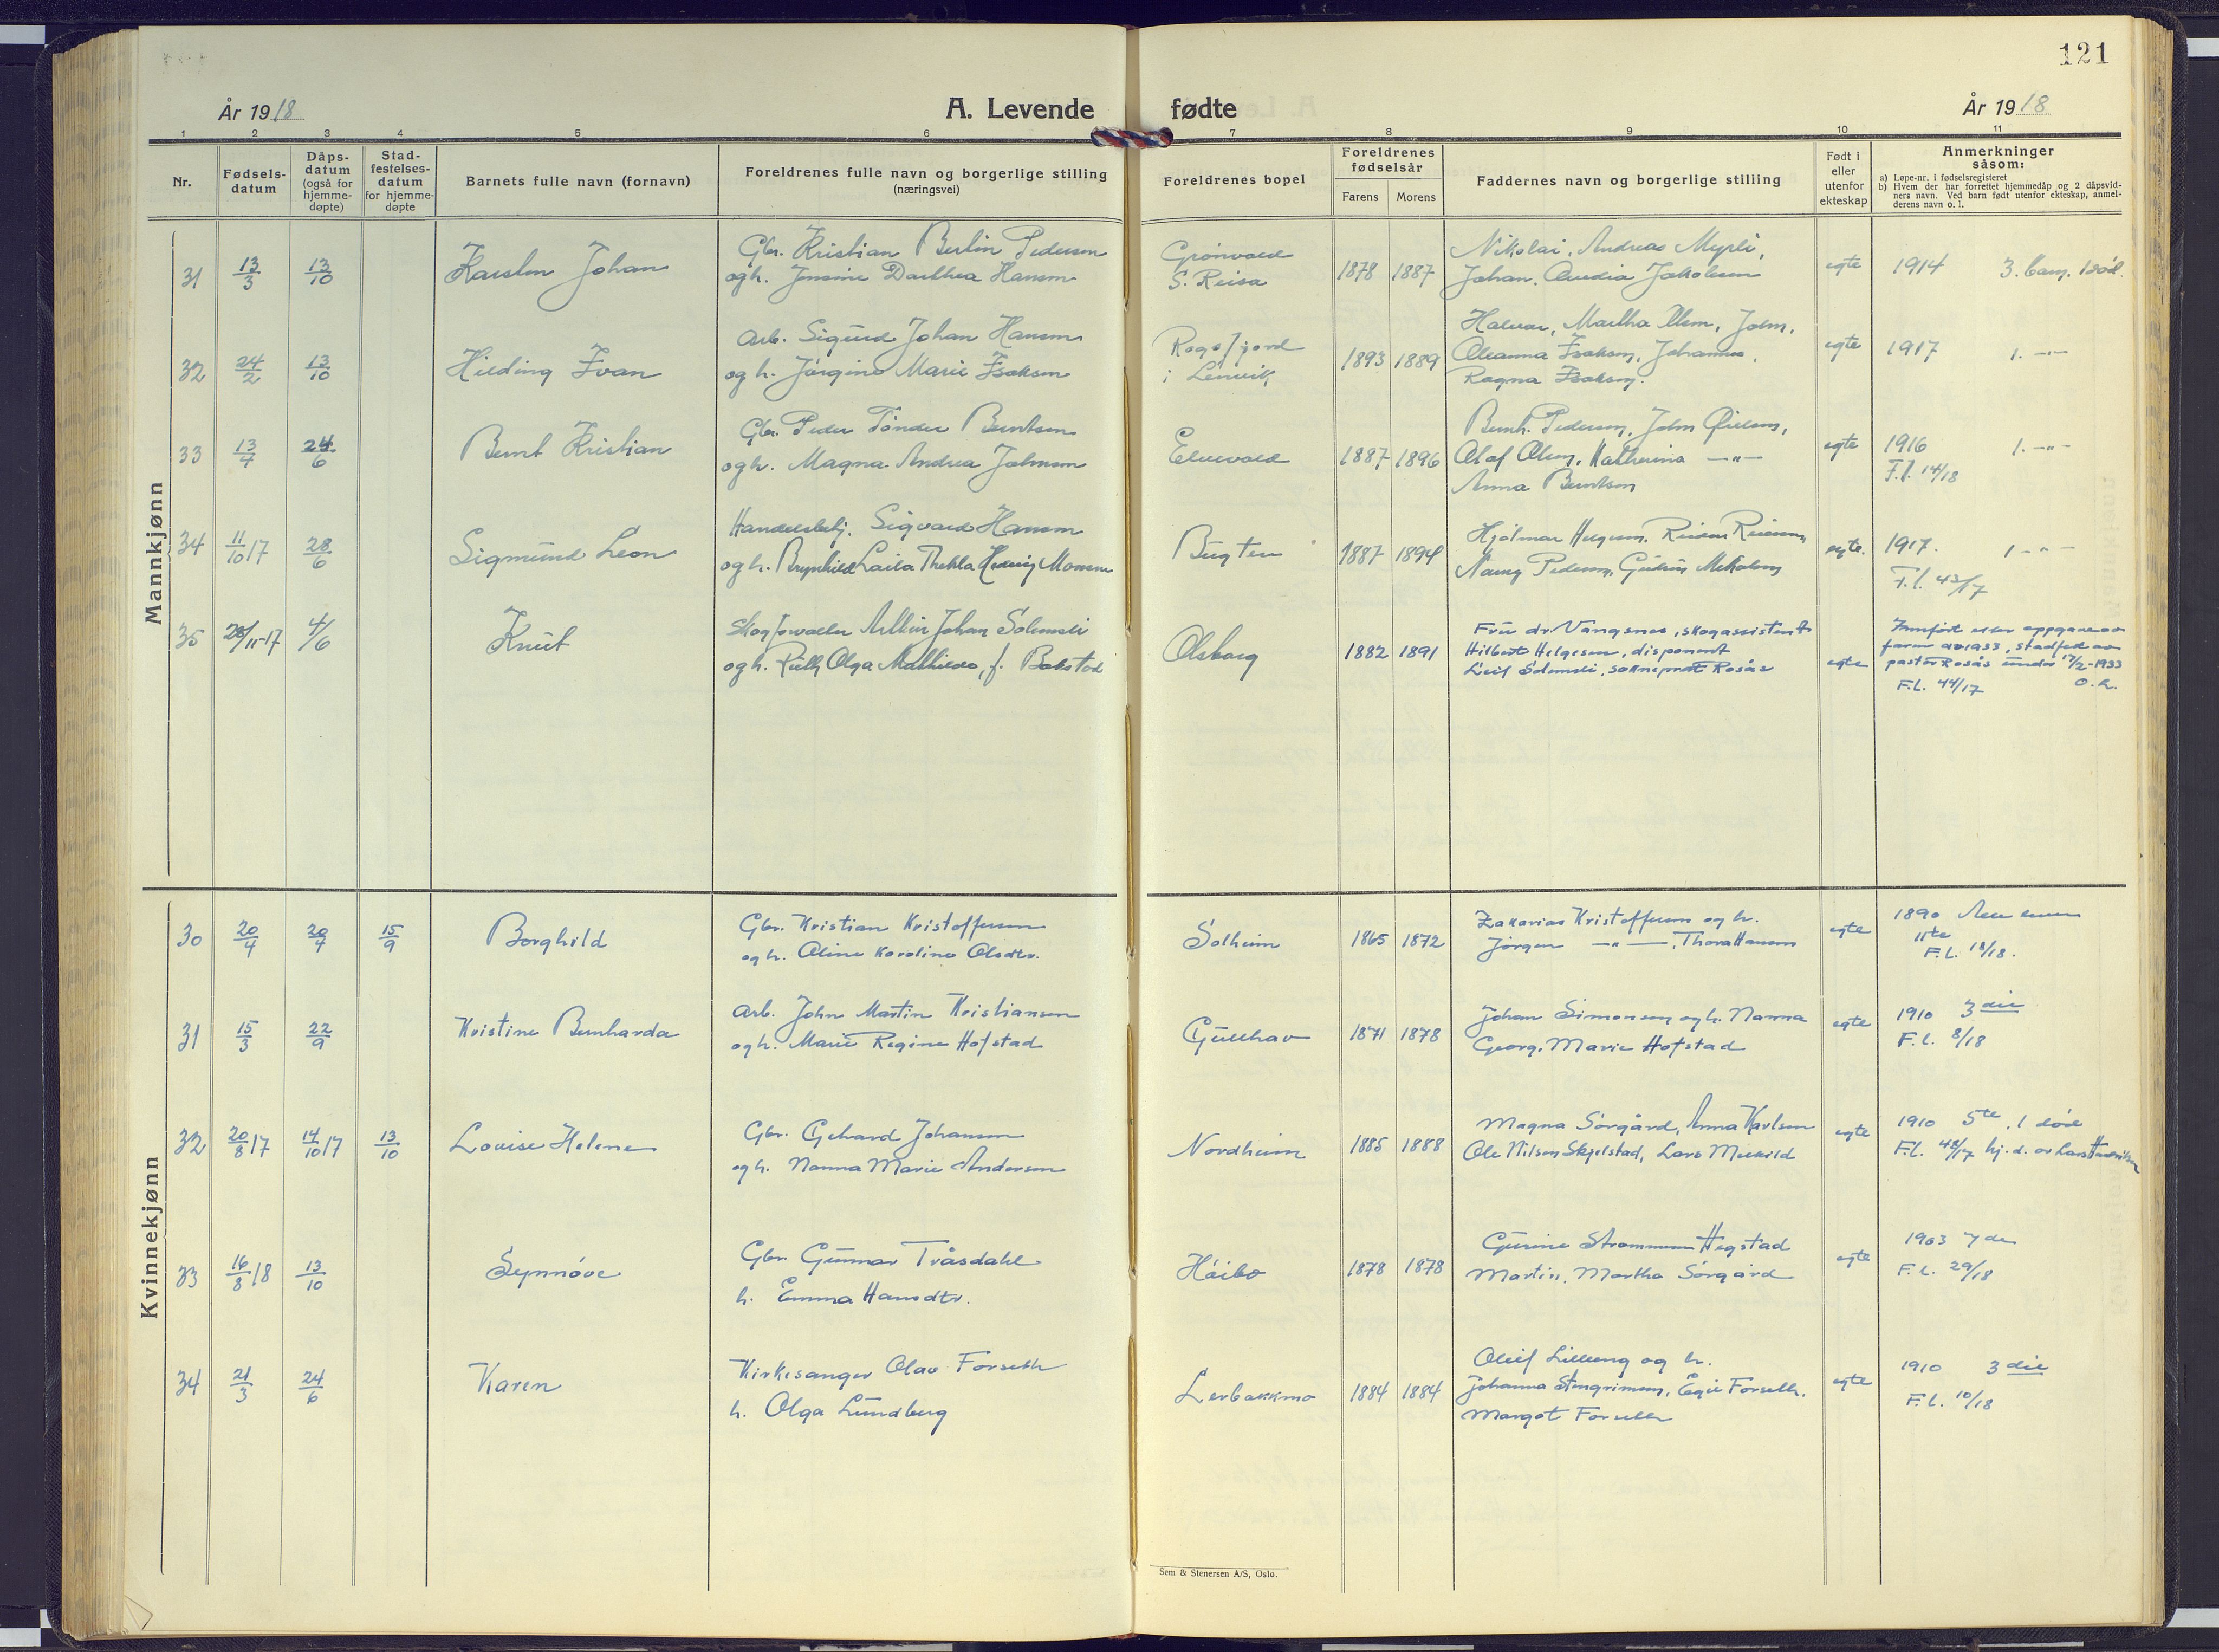 121
År 1918
A. Levende fødte
År 1918
1 2 3 4 5 6 7 8 9 10 11
Nr.
Fødsels-
datum
Dåps-
datum
(også for
hjemme-
døpte)
Stad-
festelses-
datum
for hjemme-
døpte
Barnets fulle navn (fornavn)
Foreldrenes fulle navn og borgerlige stilling
(næringsvei)
Foreldrenes bopel
Foreldrenes
fødselsår
Farens Morens
Faddernes navn og borgerlige stilling
Født i
eller
utenfor
ekteskap
Anmerkninger
såsom:
a) Løpe-nr. i fødselsregisteret
b) Hvem der har forrettet hjemmedåp og 2 dåpsvid-
ners navn. Ved barn født utenfor ekteskap, anmel-
derens navn o. l.
Mannkjønn
31 13/3 13/10 Karsten Johan
Gbr. Kristian Berlin Pedersen
og h. Jensine Dorthea Hansen
Grønvold
S. Reisa
1878 1887
Nikolai, Andreas Myrli,
Johan, Jakobsen
egte 1914 3. barn. 1 død.
32 24/2 13/10 Hilding Ivan
Arb. Sigurd Johan Hansen
og h. Jørgine Marie Isaksen
Rogsfjord
i Lenvik
1893 1889
Halvar, Martha Olsen, John,
Oleanna Isaksen, Johannes,
Ragna Isaksen.
egte 1917 1. -"-
33 13/4 24/6 Bernt Kristian
Gbr. Peder Tønder Berntsen
og h. Magna Andrea Johnsen
Elvevold
1887 1896
Bernh. Pedersen, John
Olaf Olsen, Katherina -"-
Anna Berntsen
egte 1916 1. -"-
F.l. 14/18
34 11/10 17 28/6 Sigmund Leon
Handelsbetj. Sigvald Hansen
og h. Brynhild Laila Thekla Hedvig Monsen
Bugten
1887 1894
Hjalmar Helgesen, Reidar Reiersen,
Nanny Pedersen, Gudrun
egte. 1917. 1 -"-
F.l. 43/17
35 28/11-17 4/6 Knut
Skogforvalter Arthur Johan Solemsli
og h. Ruth Olga Mathilde, f. Bakstad
Olsborg
1882 1891
Fru dr. Vangsnes, skogassistent
Hilbert Helgesen, disponent
Leif Solemsli, sokneprest Rosås
egte
Innført efter oppgave av
faren av 1933, stadfest av
pastor Rosås under 17/2-1933
F.L. 44/17 O.L.
Kvinnekjønn
30 20/4 20/4 15/9 Borghild
Gbr. Kristian Kristoffersen
og h. Oline Karoline Olsdtr.
Solheim
1865 1872
Zakarias Kristoffersen og h.
Jørgen -"-, Thora Hansen
egte 1890
11te
F.L. 18/18.
31 15/3 22/9 Kristine Bernharda
Arb. John Martin Kristiansen
og h. Marie Regine Hofstad
Gullhav
1871 1878
Johan Simonsen og h. Nanna
Georg, Marie Hofstad
egte 1910 3 die
F.L. 8/18
32 20/8 17 14/10 17 13/10 Louise Helene
Gbr. Gehard Johansen
og h. Nanna Marie Andersen
Nordheim
1885 1888
Magna Sørgård, Anna Karlsen
Ole Nilsen Skjelstad, Lars Meekild
egte 1910 5te, 1 død
F.L. 48/17 hj. d. av Lars Henriksen
33 16/8 18 13/10 Synnøve
Gbr. Gunnar Tråsdahl
h. Emma Hansdtr.
Håibo
1878 1878
Gurine Strømmen Hegstad
Martin, Martha Sørgård
egte 1903 7 de
F.L. 29/18
34 21/3 24/6 Karen
Kirkesanger Olav Forseth
h. Olga Lundberg
Lerbakkmo
1884 1884
Oleif Lilleeng og h.
Johanna Stengrimsen, Egil Forseth.
Margot Forseth
egte 1910 3 die
F.L. 10/18
Sem & Stenersen A/S, Oslo.